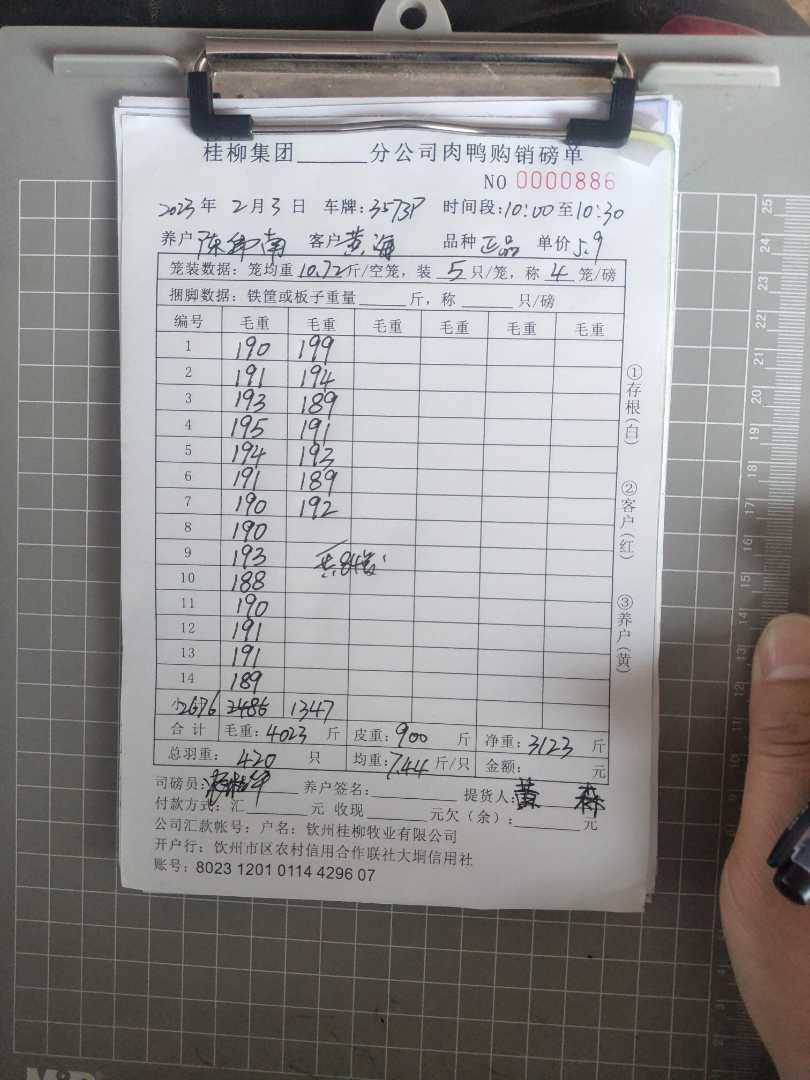 桂柳集团______分公司肉鸭购销磅单
NO 0000886
2023年 2月3日 车牌:3573P 时间段:10:00至10:30
养户 陈 南 客户 黄海 品种 正品 单价 5.9
笼装数据:笼均重 10.72 斤/空笼,装 5 只/笼,称 4 笼/磅
捆脚数据:铁筐或板子重量______斤,称______只/磅
编号 毛重 毛重 毛重 毛重 毛重 毛重
1 190 199
2 191 194
3 193 189
4 195 191
5 194 193
6 191 189
7 190 192
8 190
9 193 共84笼
10 188
11 190
12 191
13 191
14 189
小 2676 2486 1347
合计 毛重:4023 斤 皮重:900 斤 净重:3123 斤
总羽重: 420 只 均重:7.44 斤/只 金额: 元
司磅员: 养户签名:________ 提货人:黄 森
付款方式:汇________元 收现________元欠(余):________元
公司汇款帐号:户名:钦州桂柳牧业有限公司
开户行:钦州市区农村信用合作联社大垌信用社
账号:8023 1201 0114 4296 07
①存根(白)
②客户(红)
③养户(黄)
25
24
23
22
21
20
19
18
17
16
15
14
13
12
11
M&G